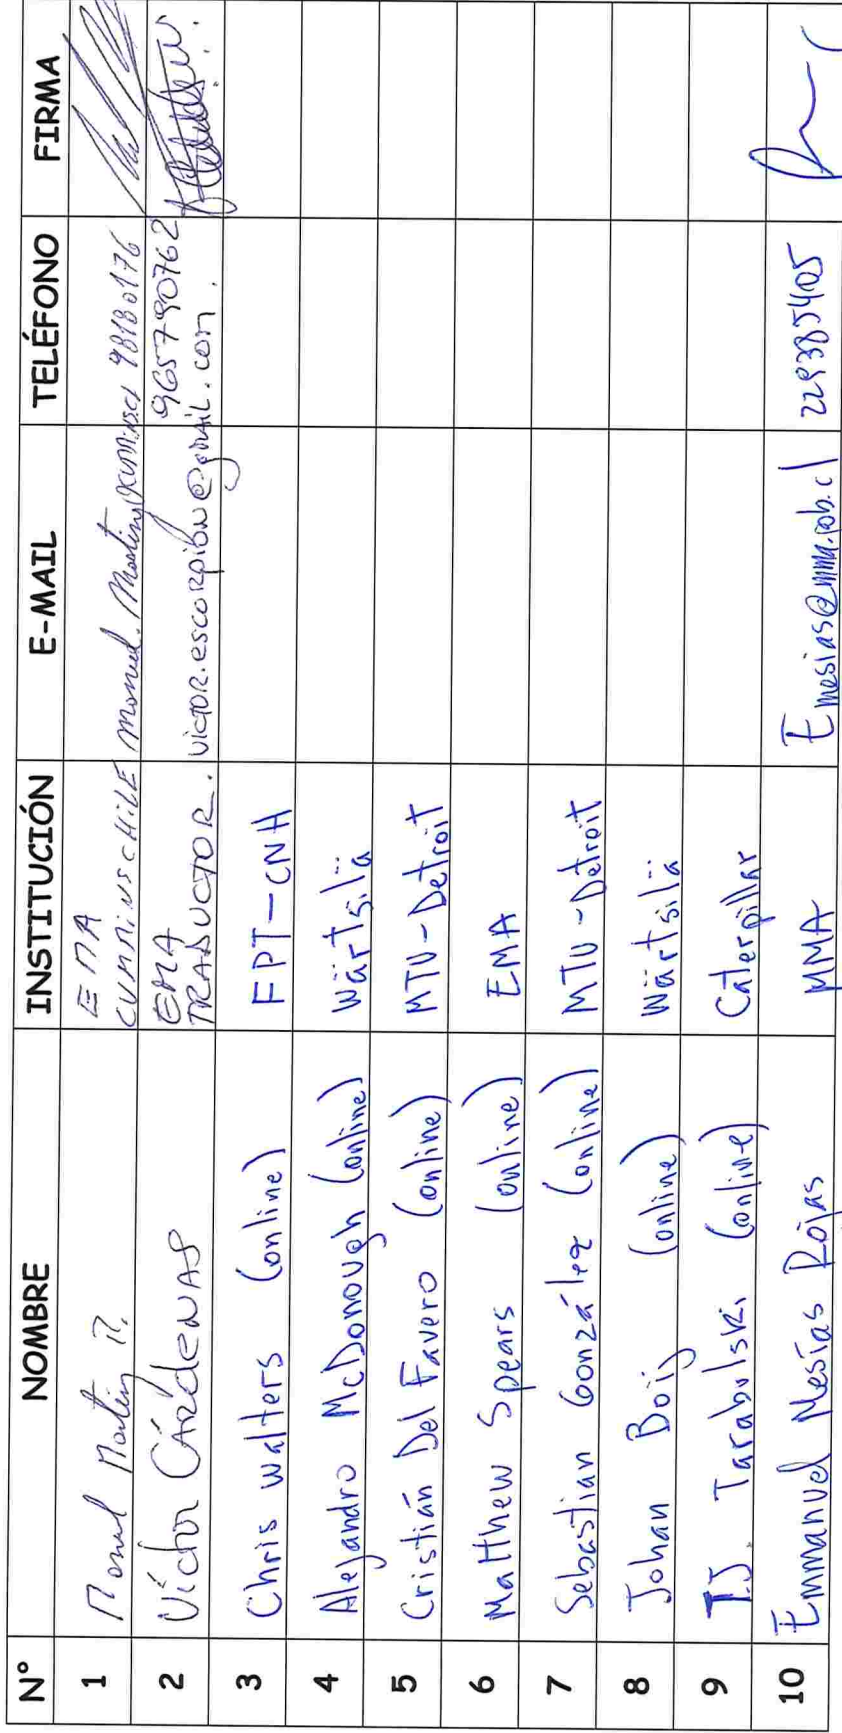 N° NOMBRE INSTITUCIÓN E-MAIL TELÉFONO FIRMA
1 Manuel Martin R. EMA CUMMINS CHILE 98180176
2 Víctor CÁRdeNAS EMA TRADUCTOR. VictoR.escoRpioN@gmail.com. 965790762
3 Chris Walters (online) FPT-CNH
4 Alejandro McDonough (online) Wärtsilä
5 Cristián Del Favero (online) MTU-Detroit
6 Matthew Spears (online) EMA
7 Sebastian González (online) MTU-Detroit
8 Johan Boij (online) Wärtsilä
9 T.J. Tarabulski (online) Caterpillar
10 Emmanuel Mesías Rojas MMA Emesias@mma.gob.cl 2293385405